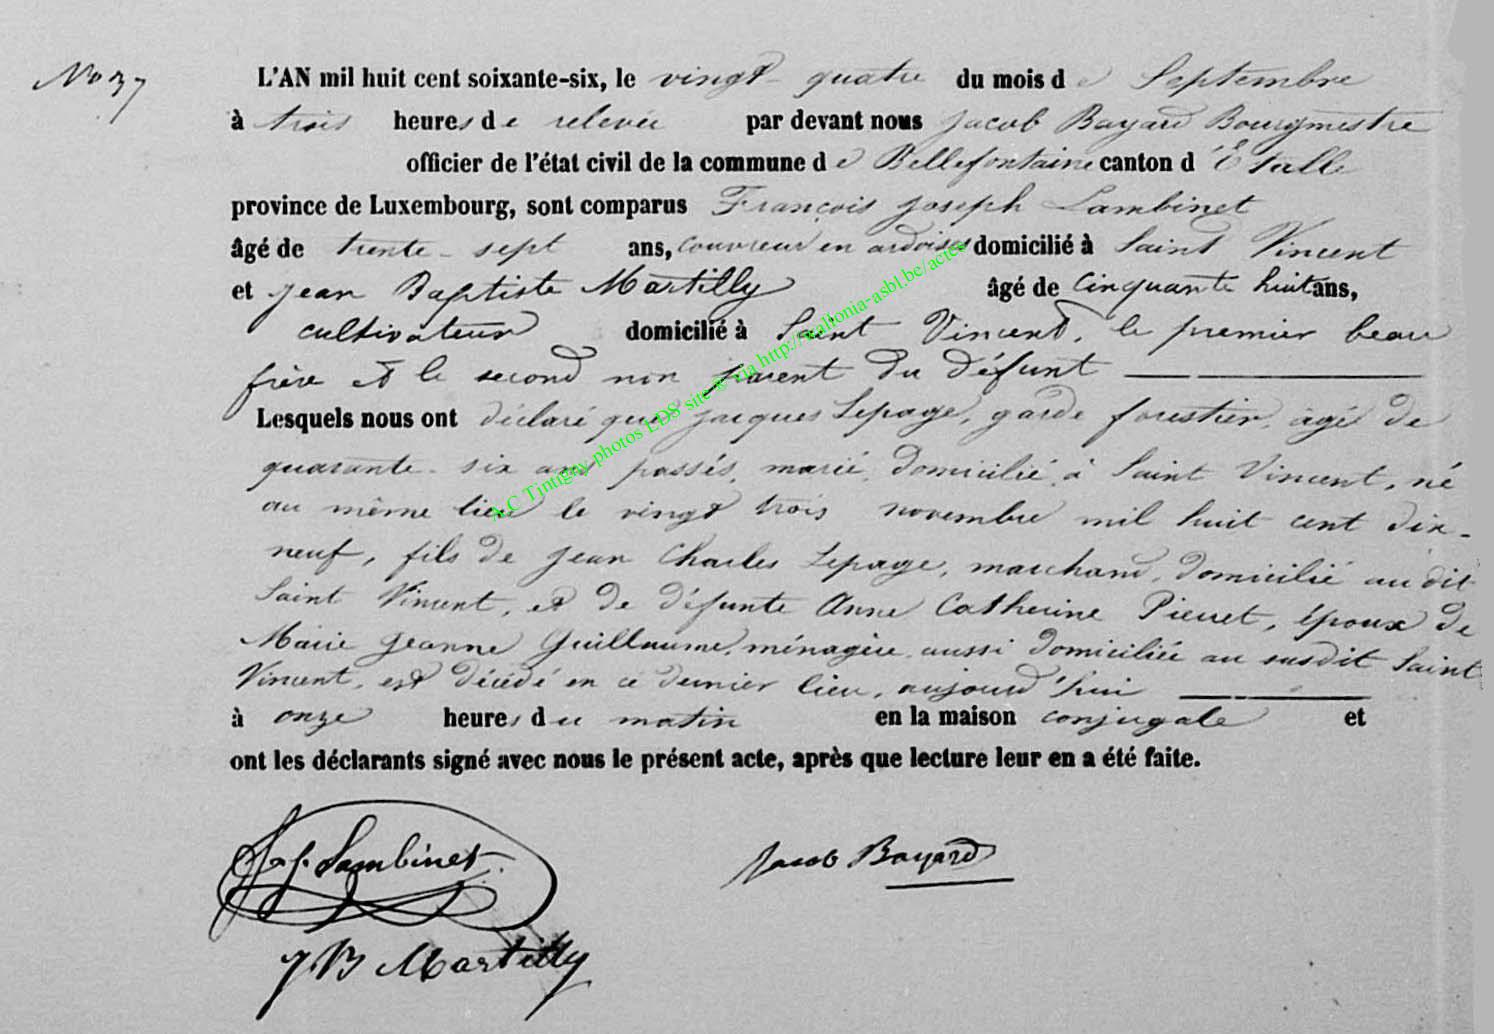 No 37
L'AN mil huit cent soixante-six, le vingt-quatre du mois de Septembre
à trois heures de relevée par devant nous Jacob Bayard Bourgmestre
officier de l'état civil de la commune de Bellefontaine canton d'Etalle
province de Luxembourg, sont comparus François Joseph Lambinet
âgé de trente-sept ans, couvreur en ardoises domicilié à Saint Vincent
et Jean Baptiste Martilly âgé de cinquante huit ans,
cultivateur domicilié à Saint Vincent, le premier beau
frère et le second non parent du défunt
Lesquels nous ont déclaré que Jacques Lepage, garde forestier, âgé de
quarante-six ans passés, marié, domicilié à Saint Vincent, né
au même lieu le vingt trois novembre mil huit cent dix-
neuf, fils de Jean Charles Lepage, marchand, domicilié au dit
Saint Vincent, et de défunte Anne Catherine Pierret, époux de
Marie Jeanne Guillaume, ménagère, aussi domiciliée au susdit Saint
Vincent, est décédé en ce dernier lieu, aujourd'hui
à onze heures du matin en la maison conjugale et
ont les déclarants signé avec nous le présent acte, après que lecture leur en a été faite.
Lambinet
Jacob Bayard
JB Martilly
A.C Tintigny photos LDS site © via http://wallonia-asbl.be/actes